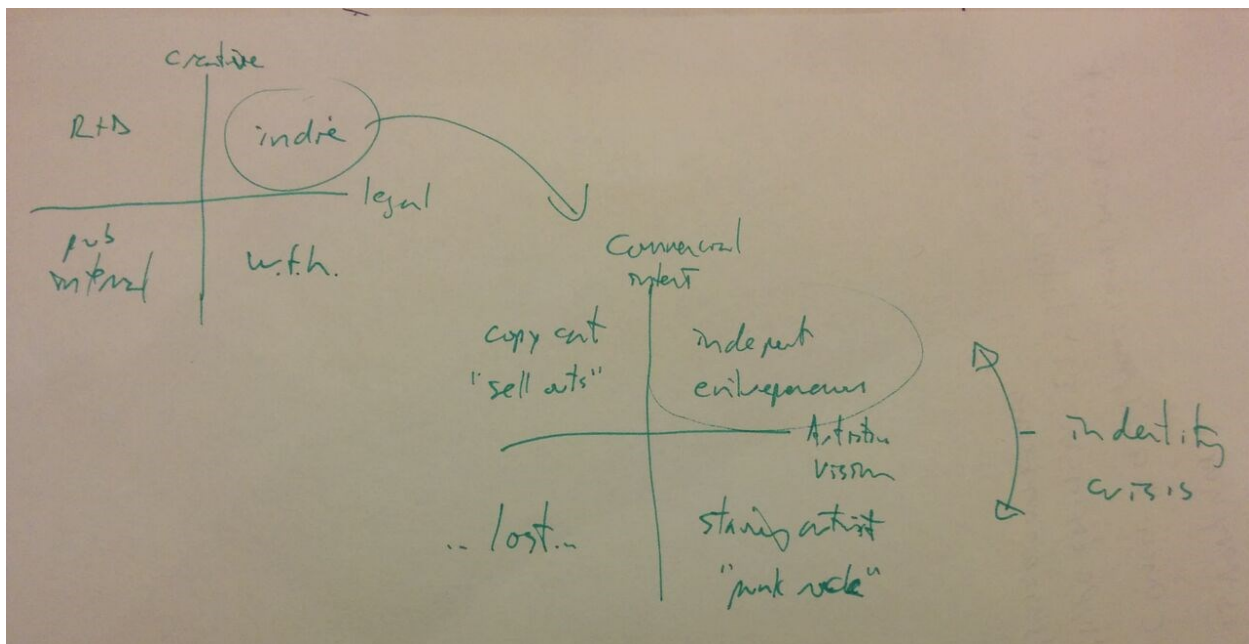 creative
R+D
indie
legal
pub
internal
w.f.h.
Commercial
intent
copy cat
"sell outs"
indepent
entrepreneurs
Artistic
vision
.. lost..
starving artist
"punk rock"
indentity
crisis